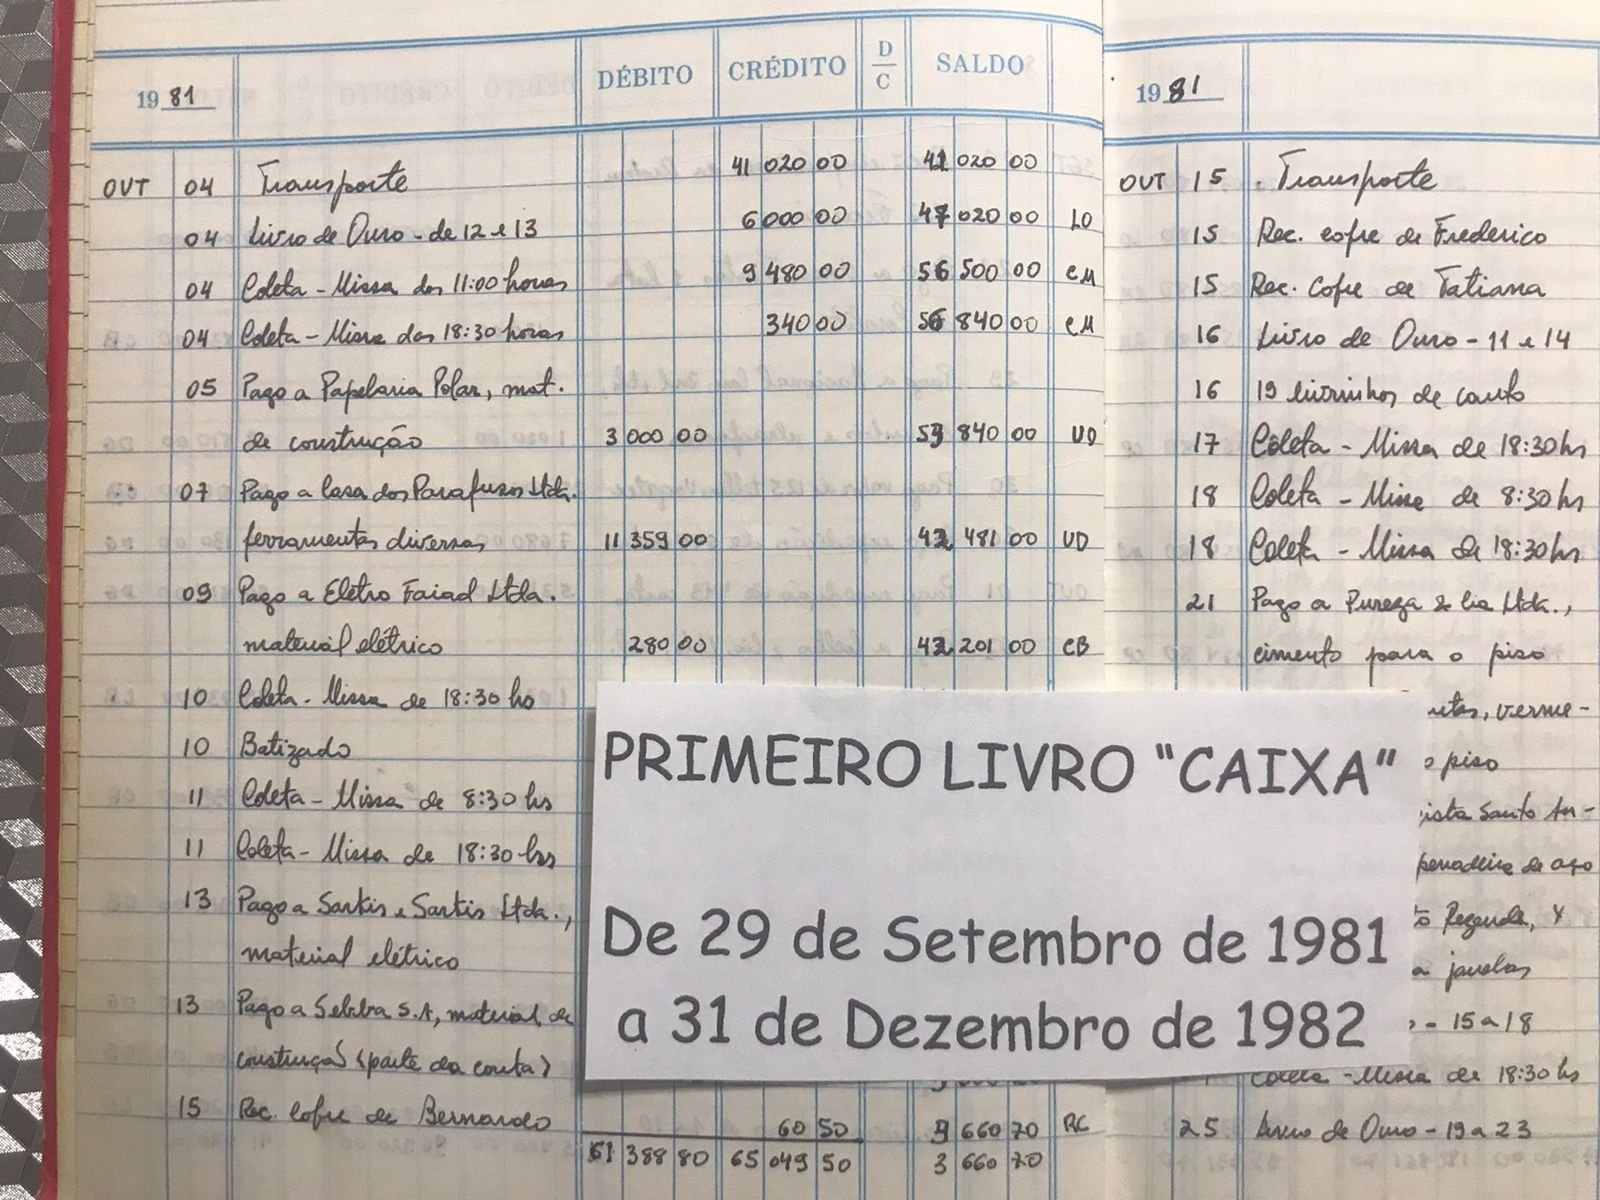 19 81 DÉBITO CRÉDITO D/C SALDO
OUT 04 Transporte 41 020 00 41 020 00
04 Livro de Ouro - de 12 e 13 6 000 00 47 020 00 LO
04 Coleta - Missa das 11:00 horas 9 480 00 56 500 00 CM
04 Coleta - Missa das 18:30 horas 340 00 56 840 00 CM
05 Pago a Papelaria Polar, mat.
de construção 3 000 00 53 840 00 UD
07 Pago a Casa dos Parafusos Ltda.
ferramentas diversas 11 359 00 42 481 00 UD
09 Pago a Eletro Faiad Ltda.
material elétrico 280 00 42 201 00 CB
10 Coleta - Missa de 18:30 hs
10 Batizado
11 Coleta - Missa de 8:30 hs
11 Coleta - Missa de 18:30 hs
13 Pago a Sarkis e Sarkis Ltda.,
material elétrico
13 Pago a Sebba S.A, material de
(parte da conta)
15 Rec. Cofre de Bernardo 60 50 660 70 RC
61 388 80 65 049 50 3 660 70
PRIMEIRO LIVRO "CAIXA"
De 29 de Setembro de 1981
a 31 de Dezembro de 1982
19 81
OUT 15 . Transporte
15 Rec. cofre de Frederico
15 Rec. Cofre de Tatiana
16 Livro de Ouro - 11 e 14
16 19 livrinhos de canto
17 Coleta - Missa de 18:30 hs
18 Coleta - Missa de 8:30 hs
18 Coleta - Missa de 18:30 hs
21 Pago a Pureza & Cia Ltda.,
cimento para o piso
verme-
o piso
Santo An-
de aço
Rezende,
janelas
- 15 a 18
Coleta - Missa de 18:30 hs
25 Livro de Ouro - 19 a 23